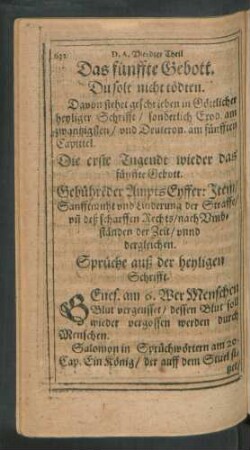 D. A. Vierdter Theil
Das fünffte Gebott.
Du solt nicht tödten.
Davon stehet geschrieben in Göttlicher
heyliger Schrifft / sonderlich Exod. am
zwantzigsten / vnd Deuteron. am fünfften
Capittel.
Die erste Tugendt wieder das
fünffte Gebott.
Gebührēder Ampts Eyffer: Item /
Sanfftmuht vnd Linderung der Straffe /
vñ deß scharffen Rechts / nach Vmb-
ständen der Zeit / vnnd
dergleichen.
Sprüche auß der heyligen
Schrifft.
GEnes. am 6. Wer Menschen
Blut vergeusset / dessen Blut soll
wieder vergossen werden durch
Menschen.
Salomon in Sprüchwörtern am 20.
Cap. Ein König / der auff dem Stuel